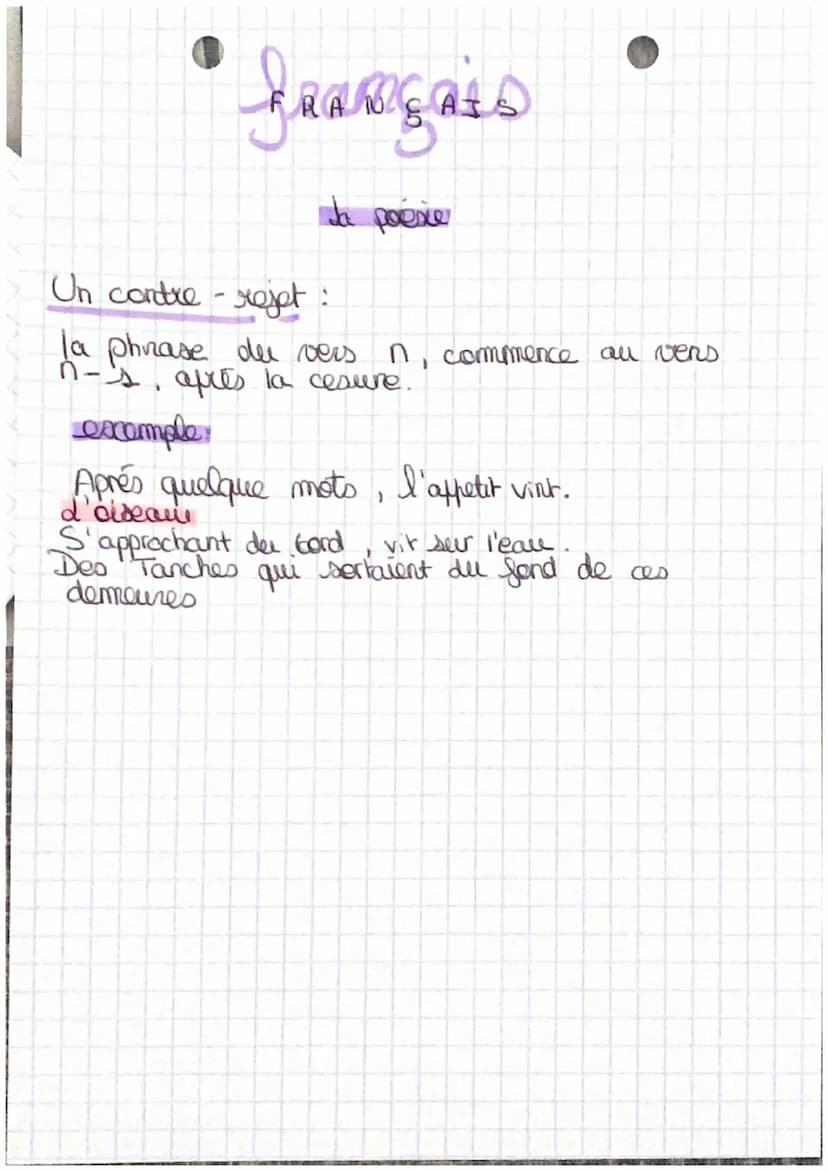 français
FRANÇAIS
la poésie
Un contre-rejet :
la phrase du vers n, commence au vers
n-1, après la cesure.
exemple:
Aprés quelque mots, l'appetit vint.
d'oiseau
S'approchant du bord, vit sur l'eau.
Des Tanches qui sortaient du fond de ces
demeures